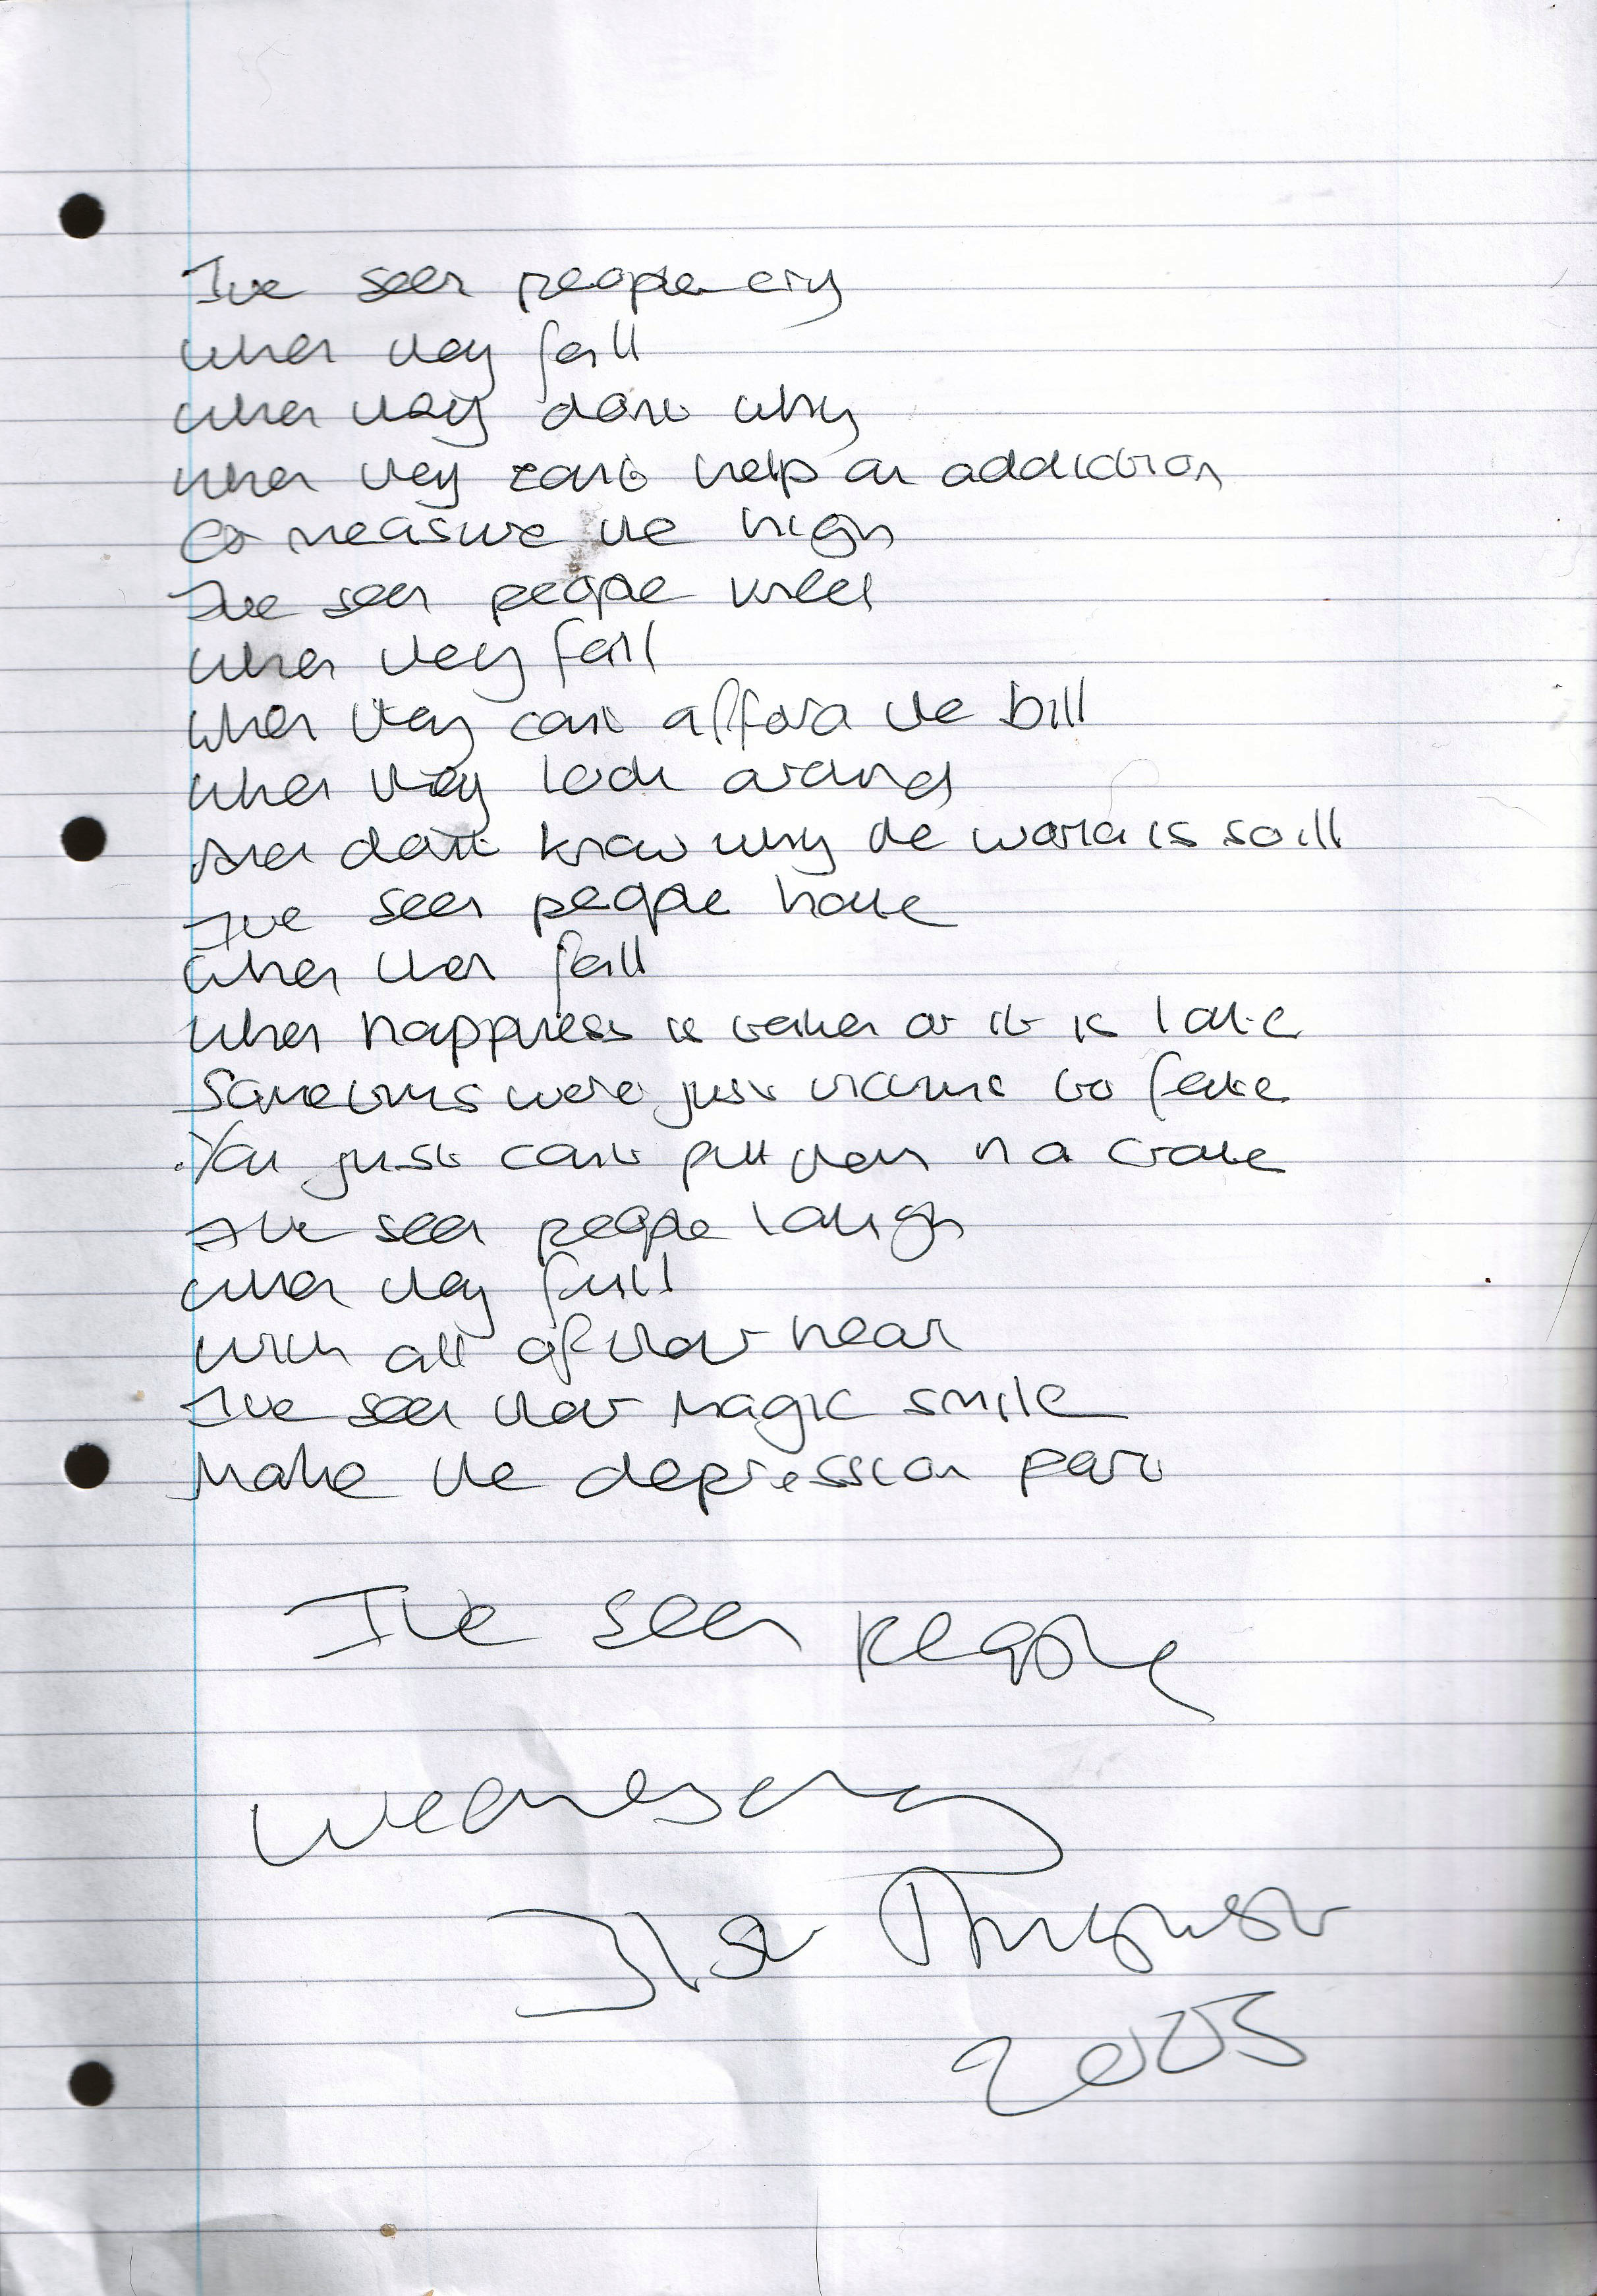 I've seen people cry
when they fall
when they dont why
when they cant help an addiction
to measure the high
I've seen people kill
when they fall
when they cant afford the bill
when they look around
and dont know why the world is so ill
I've seen people hate
when they fall
when happiness is taken or it is late
Sometimes were just victims to fate
You just cant put them in a crate
I've seen people laugh
when they fall
with all of their heart
I've seen their magic smile
Make the depression part
I've seen people
Wednesday
31st August
2005